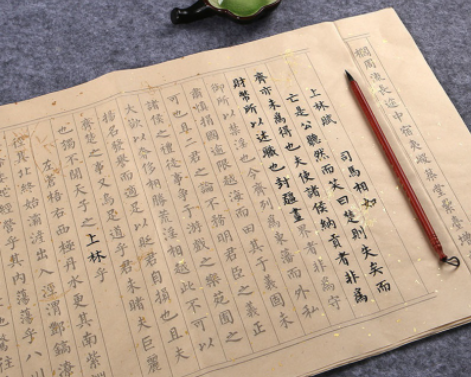 櫚周流長途中宿夷嵕築堂纍臺
上林賦
司馬相如
亡是公聽然而笑曰楚則失矣而
齊亦未為得也夫使諸侯納貢者非為
財幣所以述職也封疆畫界者非為守
御所以禁淫也今齊列為東藩而外私
肅慎捐國逾限越海而田其于義固未
可也且二君之論不務明君臣之義正
諸侯之禮徒事爭于游戲之樂苑囿之
大欲以奢侈相勝荒淫相越此不可以
揚名發譽而適足以貶君自損也且夫
齊楚之事又烏足道乎君未睹夫巨麗
也獨不聞天子之上林乎
左蒼梧右西極丹水更其南紫淵
徑其北終始灞滻出入涇渭酆鎬潦
蛇經營乎其內蕩蕩乎八川